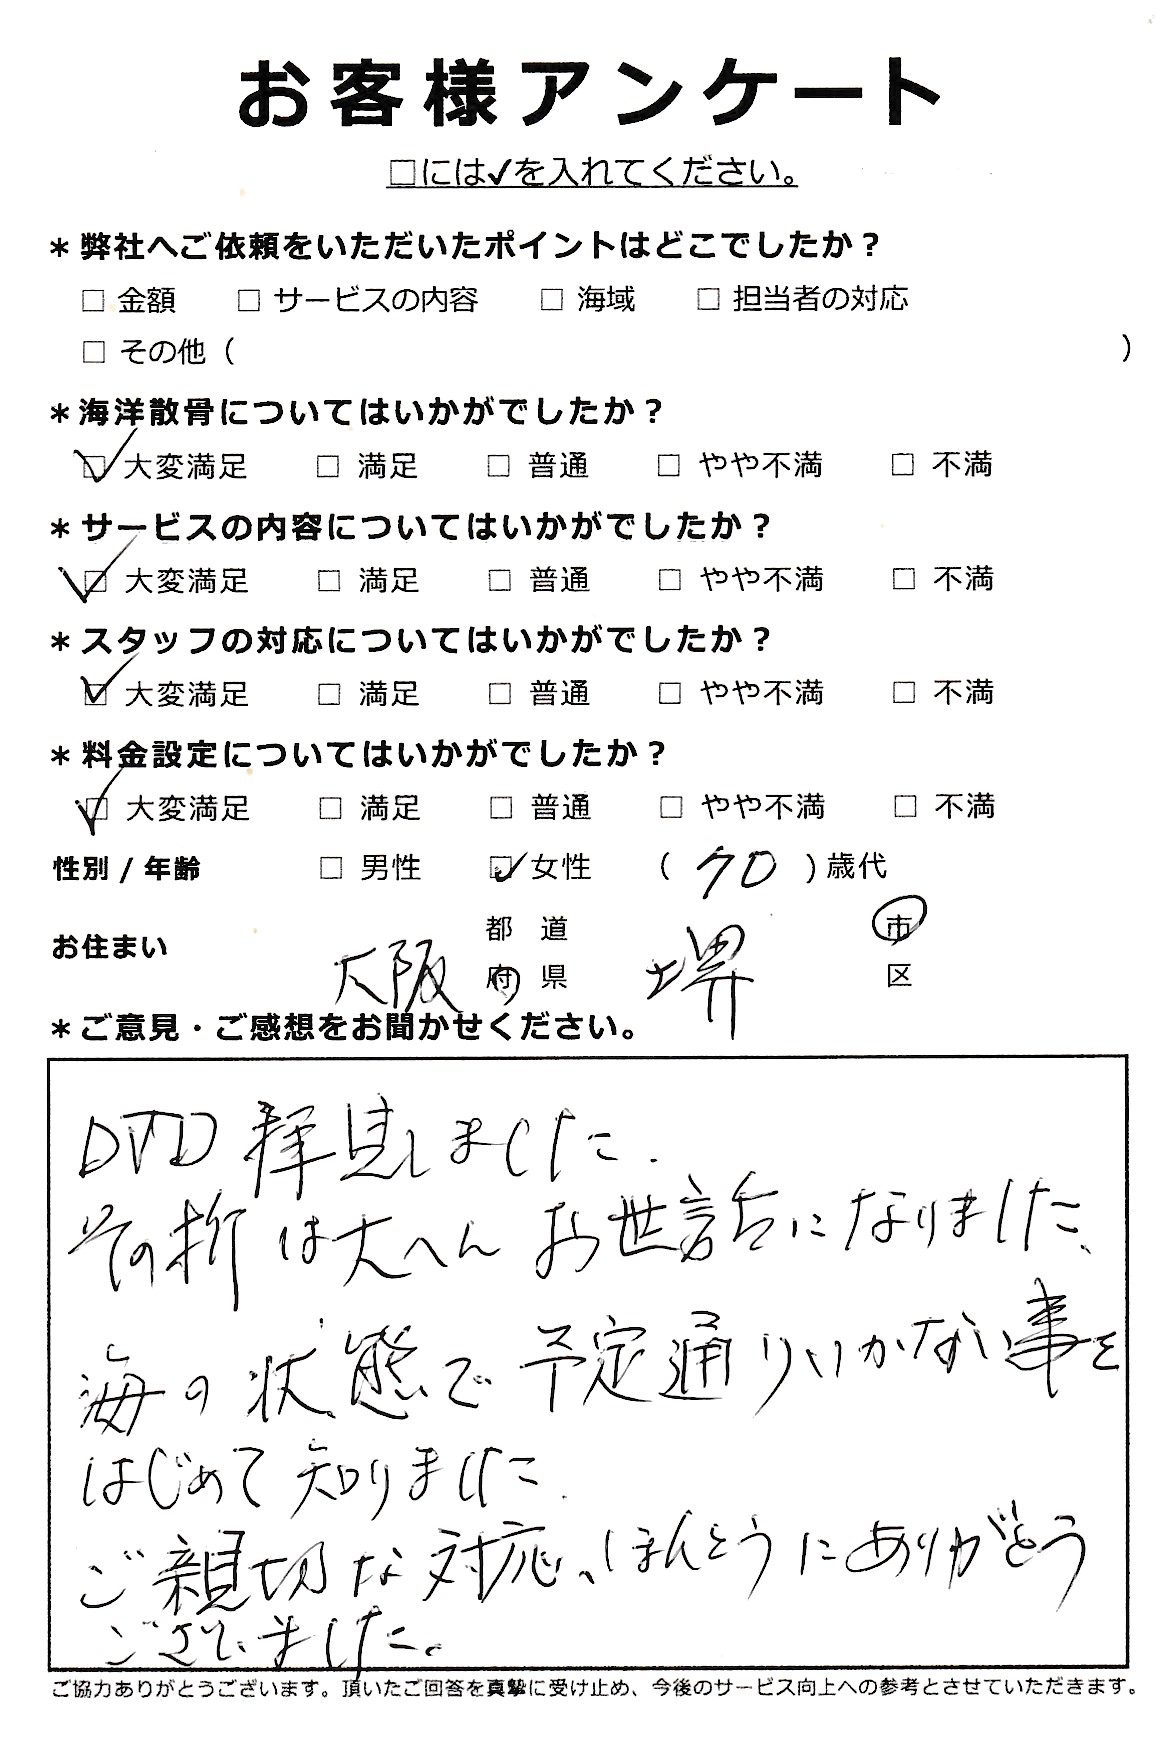 お客様アンケート
□には✓を入れてください。
＊弊社へご依頼をいただいたポイントはどこでしたか？
□ 金額 □ サービスの内容 □ 海域 □ 担当者の対応
□ その他（ ）
＊海洋散骨についてはいかがでしたか？
☑ 大変満足 □ 満足 □ 普通 □ やや不満 □ 不満
＊サービスの内容についてはいかがでしたか？
☑ 大変満足 □ 満足 □ 普通 □ やや不満 □ 不満
＊スタッフの対応についてはいかがでしたか？
☑ 大変満足 □ 満足 □ 普通 □ やや不満 □ 不満
＊料金設定についてはいかがでしたか？
☑ 大変満足 □ 満足 □ 普通 □ やや不満 □ 不満
性別 / 年齢 □ 男性 ☑ 女性 （ 70 ）歳代
お住まい 大阪 都 道 府 県 堺 市 区
＊ご意見・ご感想をお聞かせください。
DVD 拝見しました.
その折は大へん お世話になりました、
海の状態で予定通りいかない事を
はじめて知りました.
ご親切な対応、ほんとうにありがとう
ございました。
ご協力ありがとうございます。頂いたご回答を真摯に受け止め、今後のサービス向上への参考とさせていただきます。